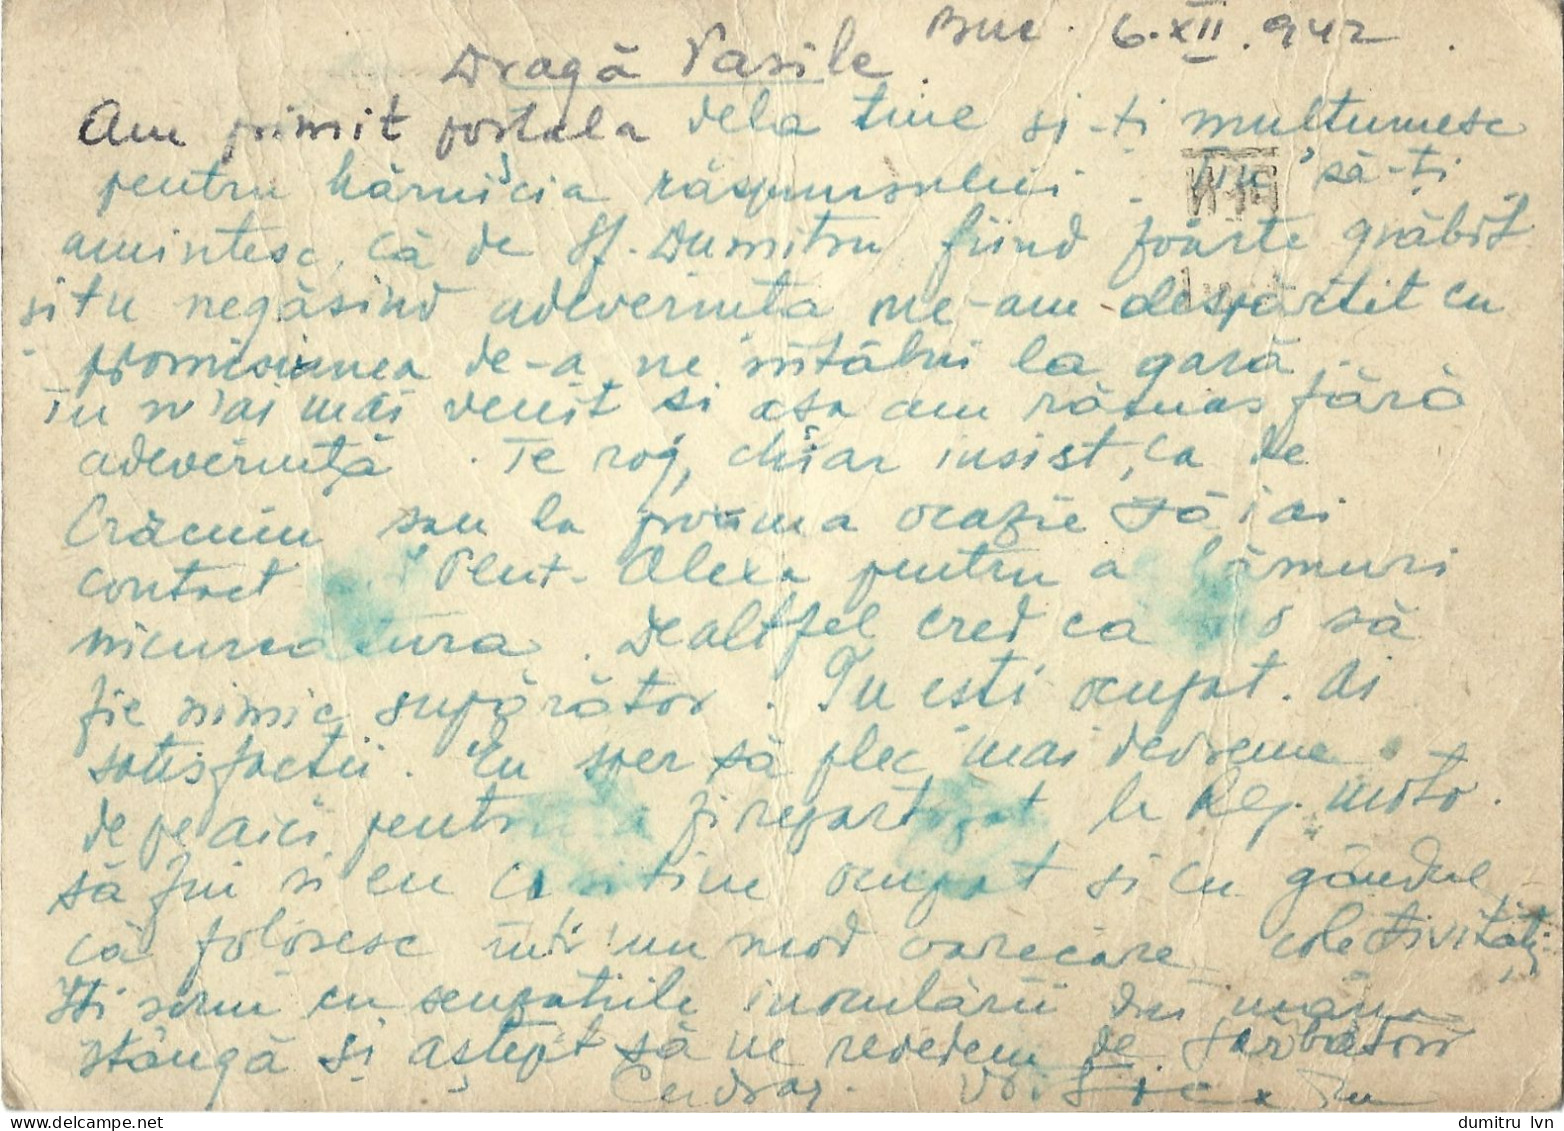 Buc. 6.XII.942
Dragă Vasile
Am primit postala dela tine și-ți multumesc
pentru hărnicia răspunsului. să-ți
amintesc, că de Sf. Dumitru fiind foarte grăbit
si tu negăsind adeverința ne-am despărtit cu
promisiunea de-a ne întâlni la gară.
Tu n'ai mai venit si asa am rămas fără
adeverință. Te rog, chiar insist, ca de
Crăciun sau la proxima ocazie să iai
contact Plut. Alexa pentru a lămuri
incurcatura. Dealtfel cred că să
fie nimic supărător. Tu ești ocupat. Ai
satisfactii. Eu sper să plec mai devreme
de pe aici pentru a fi repartizat la Reg. moto.
să fiu si eu ocupat și cu gândul
că folosesc într'un mod oarecare colectivități
Iti scriu cu senzatiile inoculării din mâna
stângă și aștept să ne revedem de sărbători
Cu drag.
dumitru_lvn